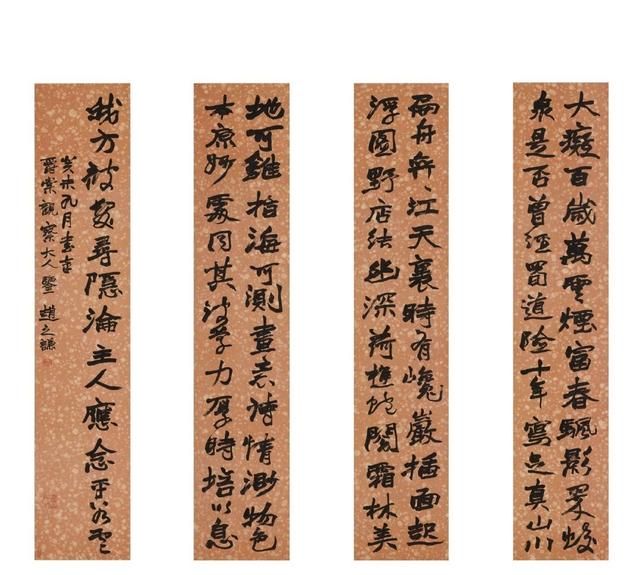 大癡百歲萬雲煙富春颿影
來是否曾經蜀道險十年寫此真山川
扁舟奔々江天裏時有巉巖插面起
浮圖野店結幽深荷樵蛇鬬霜林美
地可錐指海可測畫意詩情渺物色
本原妙處因其學力厚時培以息
我方被髮尋隱淪主人應念平
癸未九月書
爵棠觀察大人鑒 趙之謙